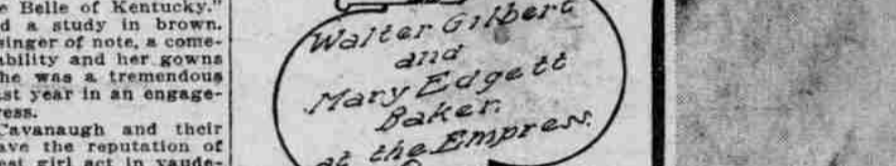 e Belle of Kentucky."
d a study in brown.
singer of note, a come-
ability and her gowns
he was a tremendous
ast year in an engage-
ress.
Cavanaugh and their
ave the reputation of
est girl act in vaude-
Walter Gilbert
and
Mary Edgett
Baker.
at the Empress.